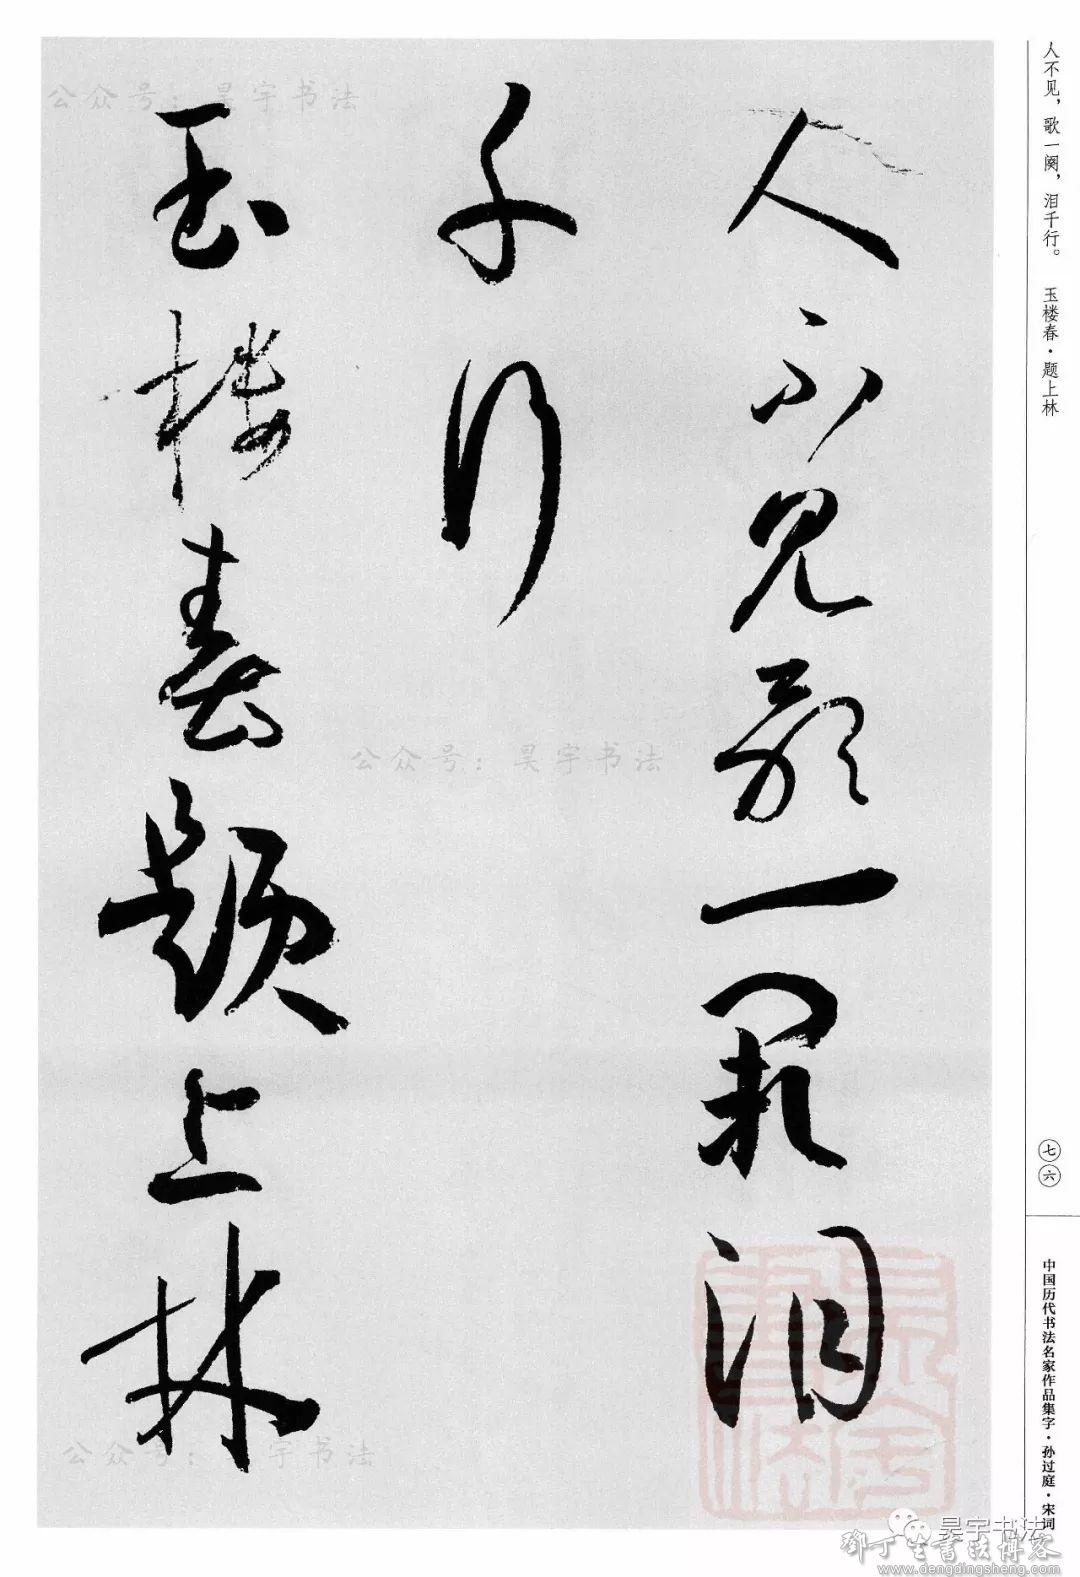 人不见歌一阕泪
千行
玉楼春题上林
人不见，歌一阕，泪千行。 玉楼春·题上林
七六
中国历代书法名家作品集字·孙过庭·宋词
公众号：昊宇书法
公众号：昊宇书法
公众号：昊宇书法
昊宇书法
昊宇书法
鄧丁生書法博客
www.dengdingsheng.com